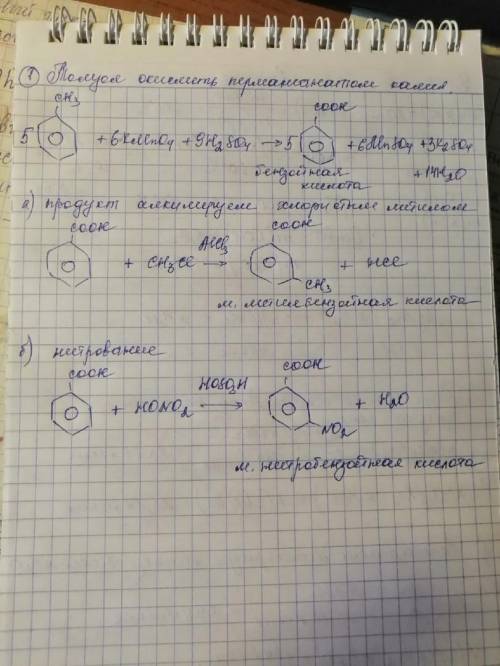 ① Толуол окислить перманганатом калия.
CH3 COOH
5 + 6KMnO4 + 9H2SO4 → 5 + 6MnSO4 + 3K2SO4
бензойная + 14H2O
кислота
а) продукт алкилируем хлористым метилом
COOH COOH
+ CH3Cl AlCl3 → + HCl
CH3
м. метилбензойная кислота
б) нитрование
COOH COOH
+ HONO2 HOSO3H → + H2O
NO2
м. нитробензойная кислота